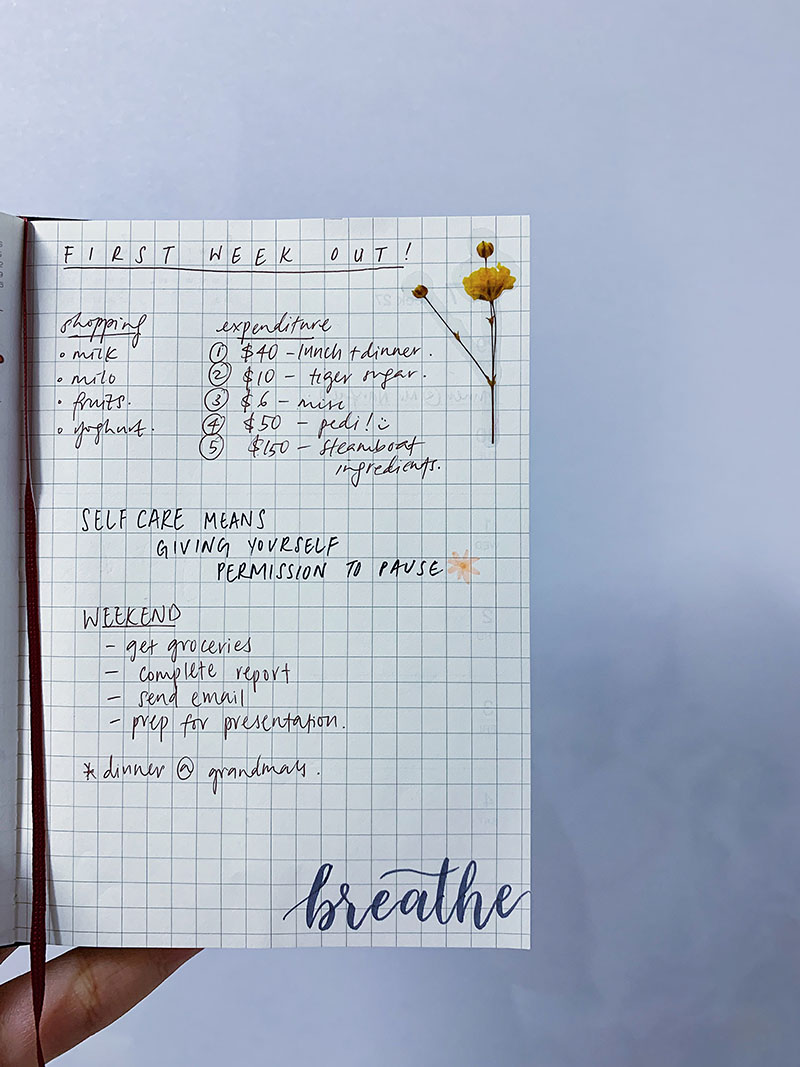 FIRST WEEK OUT!
shopping
• milk
• milo
• fruits.
• yoghurt.
expenditure
① $40 – lunch + dinner.
② $10 – tiger sugar.
③ $6 – misc
④ $50 – pedi! :)
⑤ $150 – steamboat
ingredients.
SELF CARE MEANS
GIVING YOURSELF
PERMISSION TO PAUSE
WEEKEND
– get groceries
– complete report
– send email
– prep for presentation.
* dinner @ grandma's.
breathe